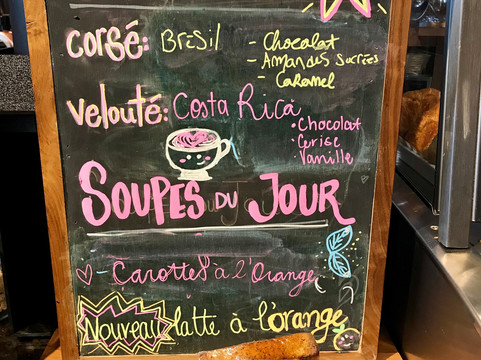 Corsé: Brésil
- Chocolat
- Amandes Sucrées
- Caramel
Velouté: Costa Rica
• Chocolat
• Cerise
• Vanille
SOUPES DU JOUR
- Carottes à l'Orange
Nouveau latte à l'orange